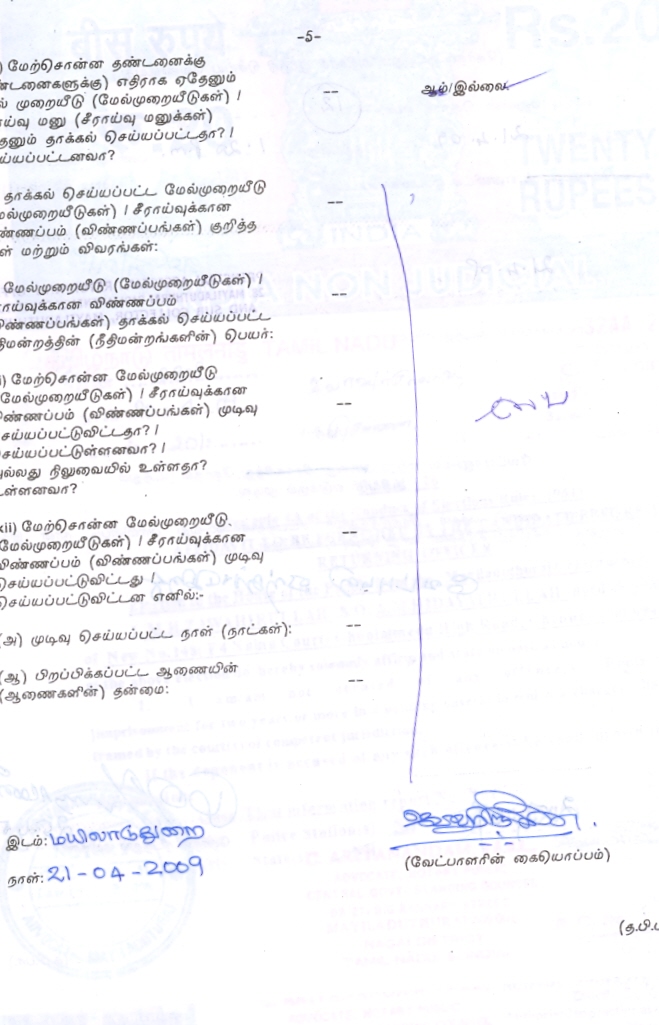 -5-
) மேற்சொன்ன தண்டனைக்கு
ண்டனைகளுக்கு) எதிராக ஏதேனும் -- ஆம்/இல்லை
ல் முறையீடு (மேல்முறையீடுகள்) /
ாய்வு மனு (சீராய்வு மனுக்கள்)
தேனும் தாக்கல் செய்யப்பட்டதா? /
ய்யப்பட்டனவா?
தாக்கல் செய்யப்பட்ட மேல்முறையீடு --
மல்முறையீடுகள்) / சீராய்வுக்கான
ண்ணப்பம் (விண்ணப்பங்கள்) குறித்த
ள் மற்றும் விவரங்கள்:
மேல்முறையீடு (மேல்முறையீடுகள்) / --
ராய்வுக்கான விண்ணப்பம்
விண்ணப்பங்கள்) தாக்கல் செய்யப்பட்ட
திமன்றத்தின் (நீதிமன்றங்களின்) பெயர்:
i) மேற்சொன்ன மேல்முறையீடு
மேல்முறையீடுகள்) / சீராய்வுக்கான --
விண்ணப்பம் (விண்ணப்பங்கள்) முடிவு
செய்யப்பட்டுவிட்டதா? /
செய்யப்பட்டுள்ளனவா? /
அல்லது நிலுவையில் உள்ளதா?
உள்ளனவா?
xii) மேற்சொன்ன மேல்முறையீடு. --
மேல்முறையீடுகள்) / சீராய்வுக்கான
விண்ணப்பம் (விண்ணப்பங்கள்) முடிவு
செய்யப்பட்டுவிட்டது /
செய்யப்பட்டுவிட்டன எனில்:-
(அ) முடிவு செய்யப்பட்ட நாள் (நாட்கள்): --
(ஆ) பிறப்பிக்கப்பட்ட ஆணையின் --
(ஆணைகளின்) தன்மை:
இடம்: மயிலாடுதுறை
நாள்: 21-04-2009
(வேட்பாளரின் கையொப்பம்)
(த.பி.